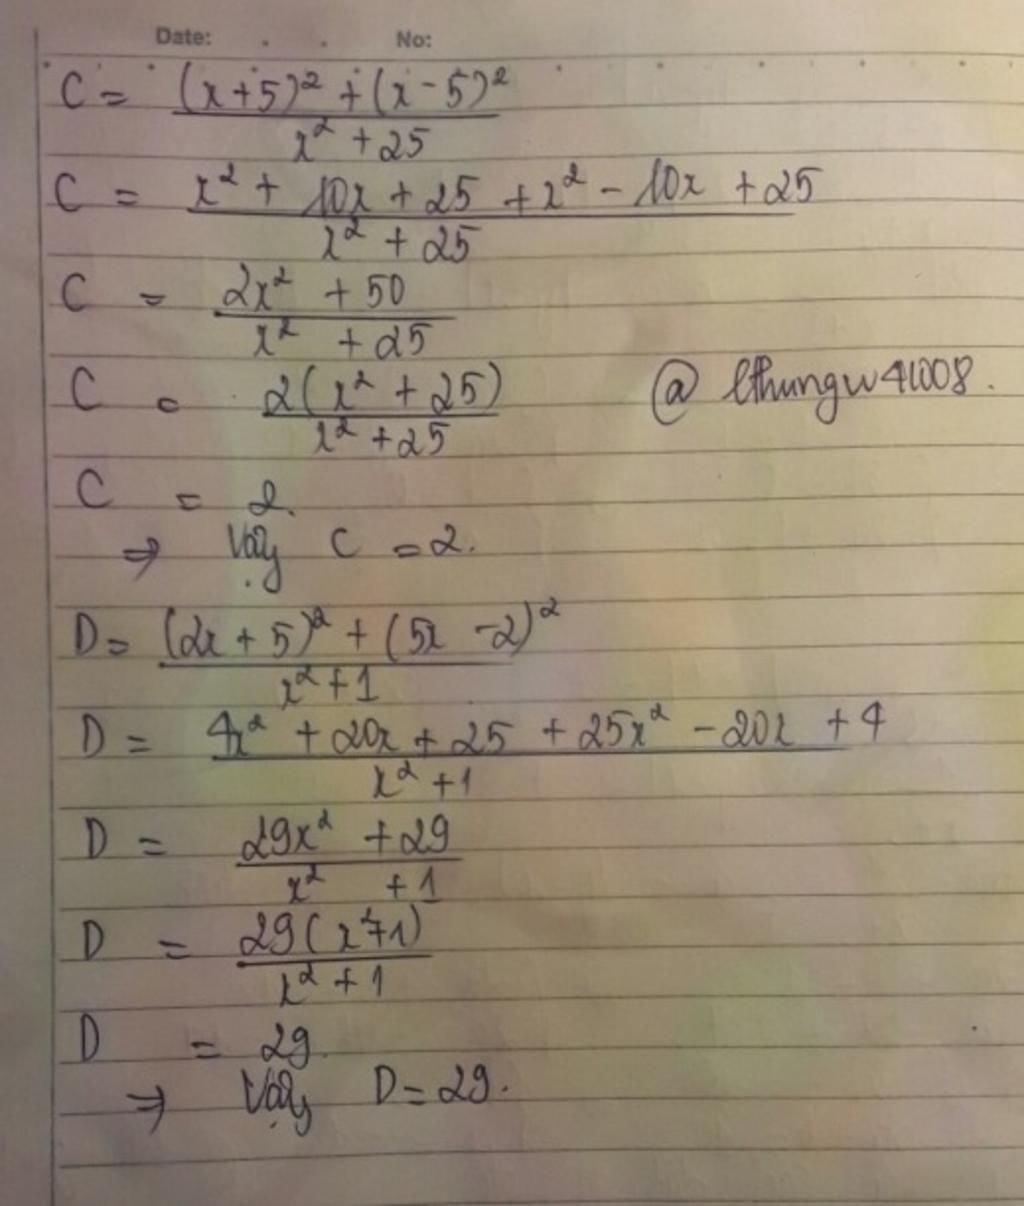 Date: . . No:
C = (x+5)² + (x-5)² / x² + 25
C = x² + 10x + 25 + x² - 10x + 25 / x² + 25
C = 2x² + 50 / x² + 25
C = 2(x² + 25) / x² + 25 @ lthungw41008.
C = 2.
⇒ Vậy C = 2.
D = (2x + 5)² + (5x - 2)² / x² + 1
D = 4x² + 20x + 25 + 25x² - 20x + 4 / x² + 1
D = 29x² + 29 / x² + 1
D = 29(x²+1) / x² + 1
D = 29.
⇒ Vậy D = 29.